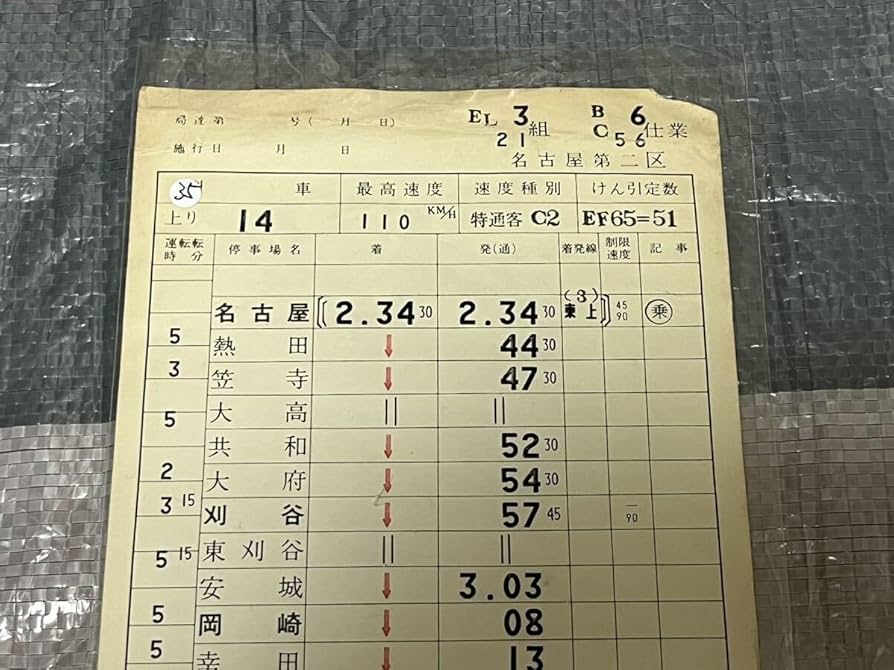 局達第　　　号(　月　日)　EL 3組　B 6仕業
21　C 56
施行日　月　日　名古屋第二区
35　車　最高速度　速度種別　けん引定数
上り　14　110 KM/H　特通客 C2　EF65=51
運転時分　停車場名　着　発(通)　着発線　制限速度　記事
名古屋　〔(2.34 30　2.34 30　(3) 東上〕　45 90　乗
5
熱田　↓　44 30
3
笠寺　↓　47 30
大高　||　||
5
共和　↓　52 30
2
大府　↓　54 30
3 15
刈谷　↓　57 45　― 90
東刈谷　||　||
5 15
安城　↓　3.03
5
岡崎　↓　08
5
幸田　↓　13